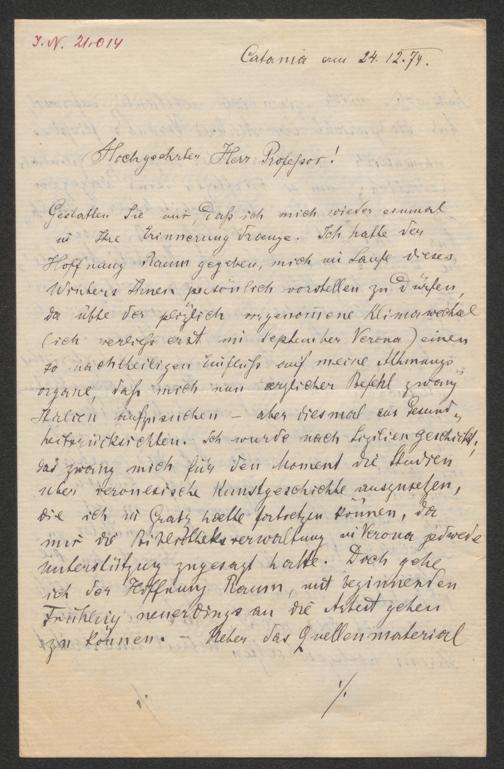 J. N. 21.014
Catania am 24.12.74.
Hochgeehrter Herr Professor!
Gestatten Sie mir, daß ich mich wieder einmal
in Ihre Erinnerung draenge. Ich hatte der
Hoffnung Raum gegeben, mich im Laufe dieses
Winters Ihnen persönlich vorstellen zu dürfen,
da übte der plözlich vorgenomene Klimawechsel
(ich verließ erst im September Verona) einen
so nachtheiligen Einfluß auf meine Athmungs
organe, daß mich nun ärzlicher Befehl zwang
Italien aufzusuchen – aber diesmal aus Gesund
heitsrücksichten. Ich wurde nach Sizilien geschickt,
das zwang mich für den Moment die Studien
über veronesische Kunstgeschichte auszusetzen,
die ich in Gratz haette fortsetzen können, da
mir die Bibliotheksverwaltung in Verona jedwede
Unterstützung zugesagt hatte. Doch gebe
ich der Hoffnung Raum, mit beginnenden
Frühling neuerdings an die Arbeit gehen
zu können. Ueber das Quellenmaterial
./.